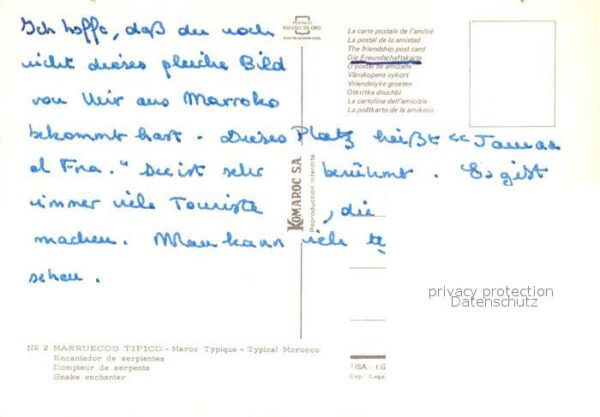 Ich hoffe, daß du noch
nicht dieses gleiche Bild
von Mir aus Marroko
bekommt hast. Dieses Platz heißt "Jamaa
el Fna." Sie ist sehr berühmt. Es gist
immer viele Touriste, die
machen. Man kann viele te
sehen.
POSTALES
ESCUDO DE ORO
La carte postale de l'amitié
La postal de la amistad
The friendship post card
Die Freundschaftskarte
O postal de amizade
Vänskapens vykort
Vriendelyke groeten
Otkritka druchbi
La cartolina dell'amicizia
La poŝtkarto de la amikeco
KOMAROC S.A.
Reproduction interdite
privacy protection
Datenschutz
Nº 2 MARRUECOS TIPICO - Maroc Typique - Typical Morocco
Encantador de serpientes
Dompteur de serpents
Snake enchanter
FISA. - I.G
Dep. Lega